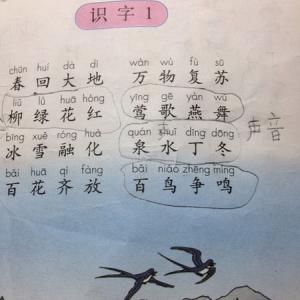 识字1
chūn huí dà dì wàn wù fù sū
春回大地 万物复苏
liǔ lǜ huā hóng yīng gē yàn wǔ
柳绿花红 莺歌燕舞
bīng xuě róng huà quán shuǐ dīng dōng
冰雪融化 泉水丁冬
声音
bǎi huā qí fàng bǎi niǎo zhēng míng
百花齐放 百鸟争鸣